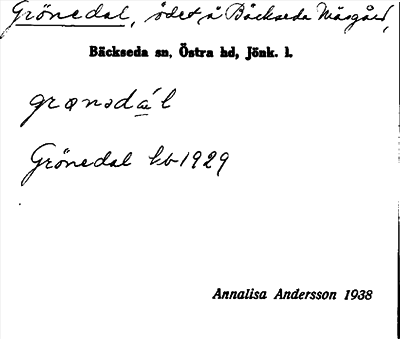 Grönedal, ödet å Bäckseda Näsgård,
Bäckseda sn, Östra hd, Jönk. l.
grønədál
Grönedal hb 1929
Annalisa Andersson 1938